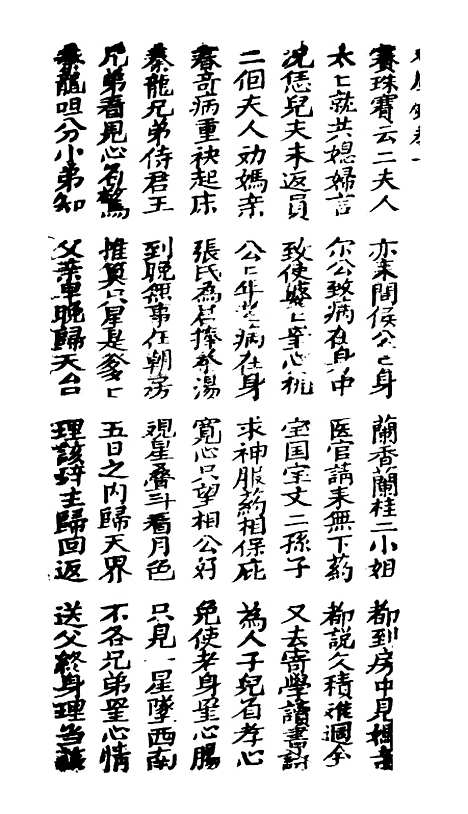 卷一
賽珠賽云二夫人 亦来問侯公々身 蘭香蘭桂二小姐 都到房中見
太々就共媳婦言 尔公致病在身中 医官請来無下葯 都說久積难週全
况恁兒夫未返員 致使婆々罣心机 宝国宝文二孫子 又去寄學讀書詩
二個夫人劝媽亲 公々年老病在身 求神服葯相保庇 為人子兒有孝心
春奇病重袂起床 張氏為君捧茶湯 寬心只望相公好 免使老身罣心腸
秦龍兄弟侍君王 到晚無事在朝房 視星叠斗看月色 只見一星墜西南
兄弟看見心有驚 推算只星是爹々 五日之内歸天界 不各兄弟罣心情
秦龍呾分小弟知 父亲早晚歸天台 理該辞主歸回返 送父終身理当該